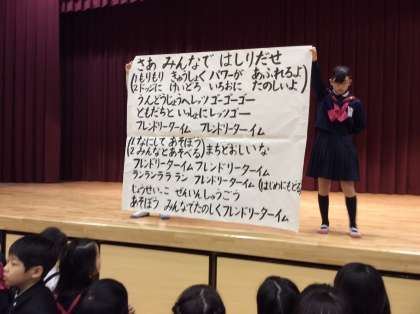 さあ みんなで はしりだせ
(1 もりもり きゅうしょく パワーが あふれるよ
(2 ドッジに けいどろ いろおに たのしいよ
うんどうじょうへレッツゴーゴーゴー
ともだちと いっしょにレッツゴー
フレンドリータイム フレンドリータイム
(1 なにして あそぼう
(2 みんなと あそべる) まちどおしいな
フレンドリータイム フレンドリータイム
ランランララ ラン フレンドリータイム (はじめにもどる)
じょうせいっこ ぜんいんしゅうごう
あそぼう みんなでたのしくフレンドリータイム